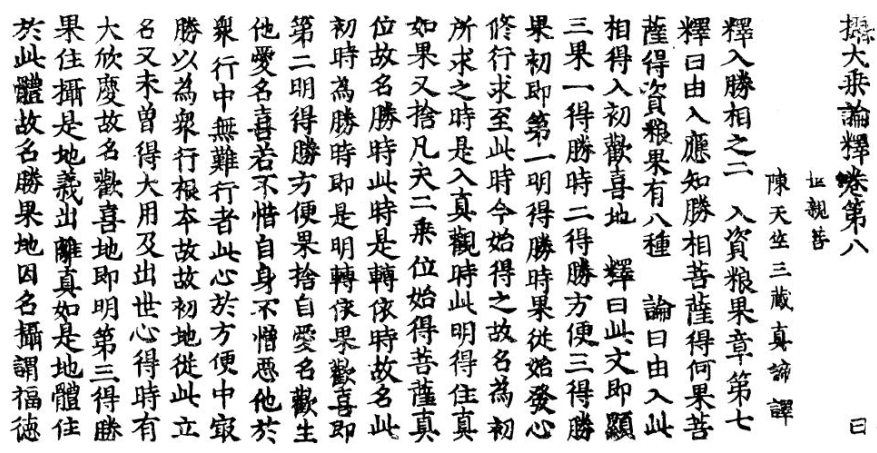 攝大乘論釋卷第八 曰
世親菩
陳天竺三藏真諦譯
釋入勝相之二 入資粮果章第七
釋曰由入應知勝相菩薩得何果菩
薩得資粮果有八種 論曰由入此
相得入初歡喜地 釋曰此文即顯
三果一得勝時二得勝方便三得勝
果初即第一明得勝時果從始發心
修行求至此時今始得之故名為初
所求之時是入真觀時此明得住真
如果又捨凡夫二乘位始得菩薩真
位故名勝時此時是轉依時故名此
初時為勝時即是明轉依果歡喜即
第二明得勝方便果捨自愛名歡生
他愛名喜若不惜自身不憎惡他於
衆行中無難行者此心於方便中㝡
勝以為衆行根本故故初地從此立
名又未曾得大用及出世心得時有
大欣慶故名歡喜地即明第三得勝
果住攝是地義出離真如是地體住
於此體故名勝果地因名攝謂福德